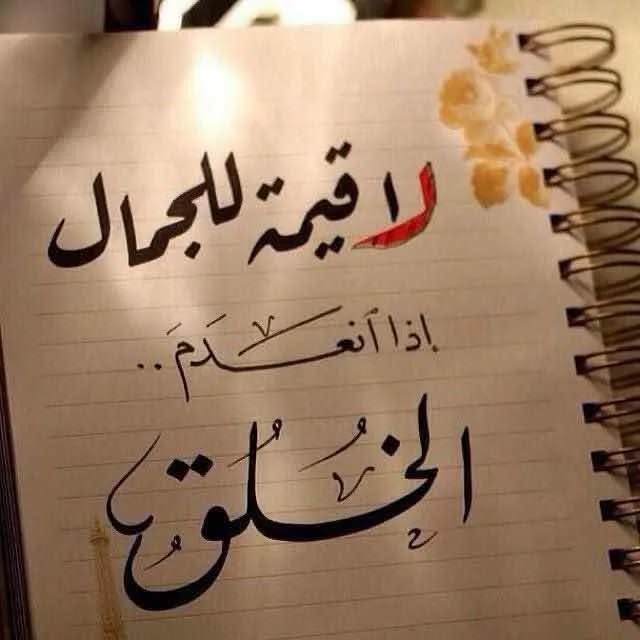 لا قيمة للجمال
إذا أنعدَمَ..
الخُلُقُ